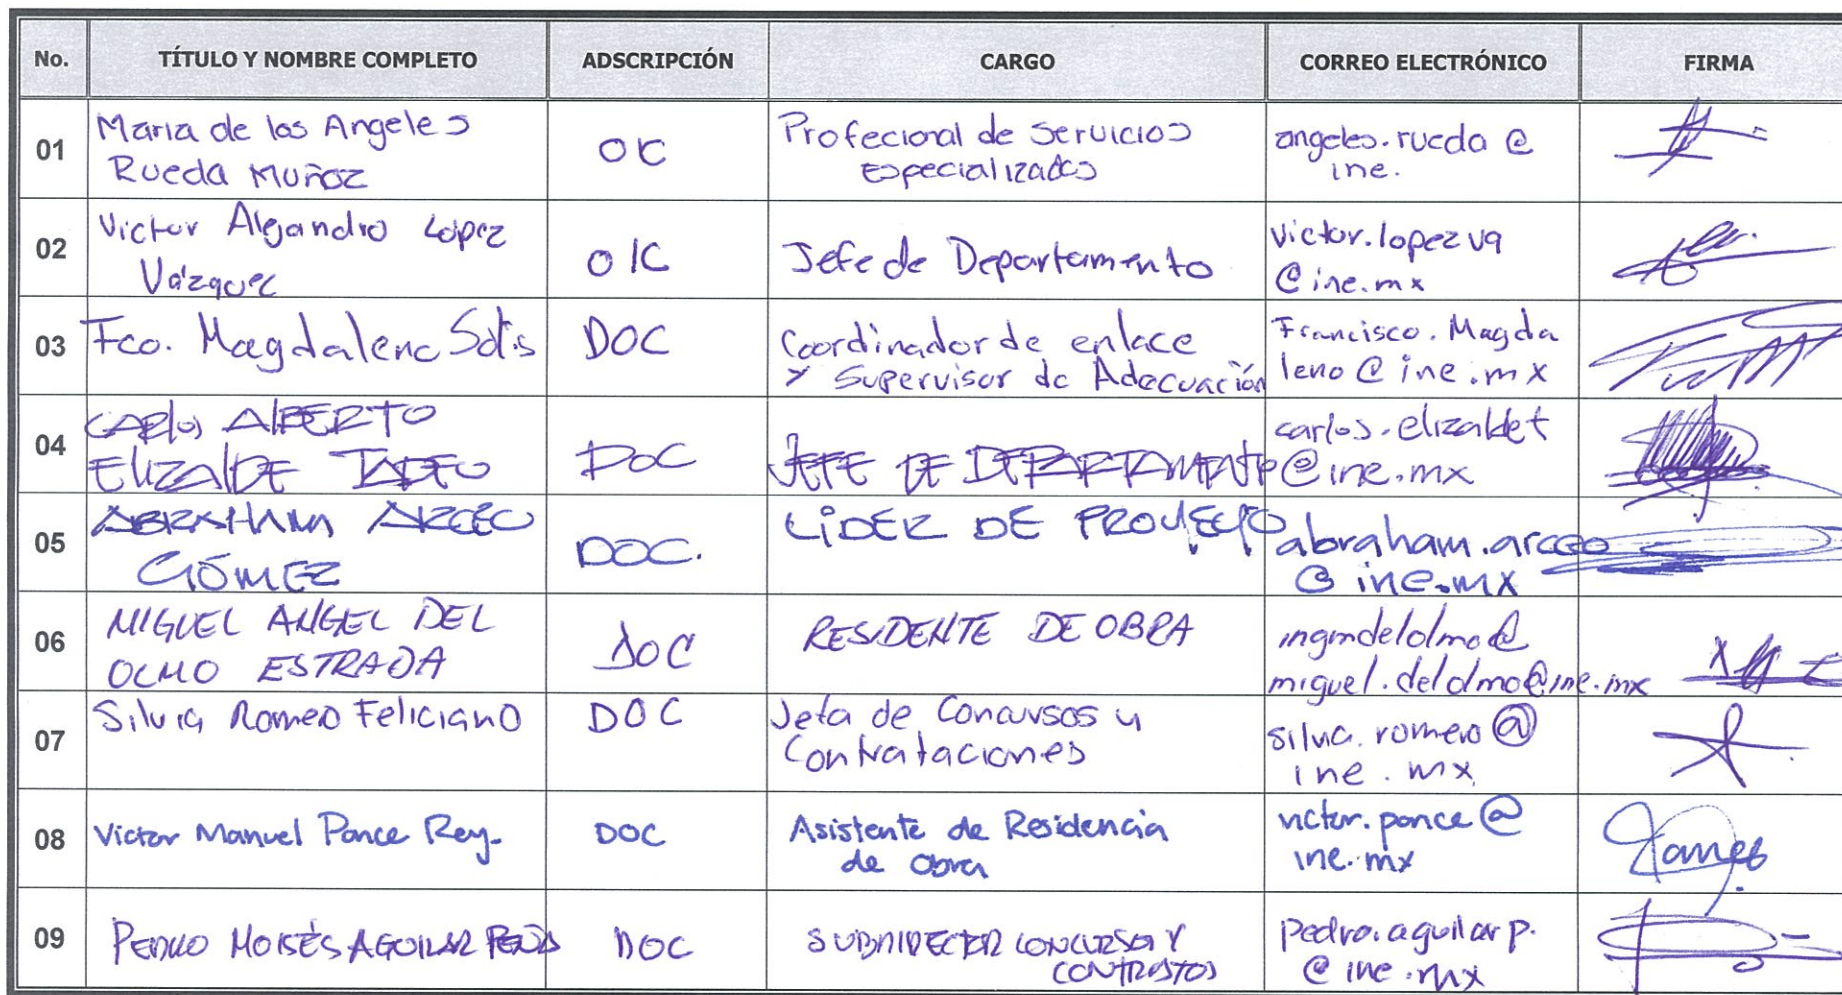 No. TÍTULO Y NOMBRE COMPLETO ADSCRIPCIÓN CARGO CORREO ELECTRÓNICO FIRMA
01
Maria de los Angeles
Rueda Muñoz
OIC
Profecional de Servicios
Especializados
angeles.rueda @
ine.
02
Victor Alejandro López
Vázquez
OIC
Jefe de Departamento
victor.lopezva
@ine.mx
03
Fco. Magdaleno Solis
DOC
Coordinador de enlace
y Supervisor de Adecuación
Francisco.Magda
leno@ine.mx
04
CARlos AlBERTO
ElIZAlDE TADEO
DOC
JEFE DE DEPARTAMENTO
carlos.elizaldet
@ine.mx
05
ABRAHAM ARCEO
GÓMEZ
DOC.
LÍDER DE PROYECTO
abraham.arceo
@ine.mx
06
MIGUEL ANGEL DEL
OLMO ESTRADA
DOC
RESIDENTE DE OBRA
ingmdelolmo@
miguel.delolmo@ine.mx
07
Silvia Romero Feliciano
DOC
Jefa de Concursos y
Contrataciones
silvia.romero@
ine.mx
08
Victor Manuel Ponce Rey.
DOC
Asistente de Residencia
de Obra
victor.ponce@
ine.mx
09
PEDRO MOISÉS AGUILAR
DOC
SUBDIRECTOR CONCURSOS Y
CONTRATOS
pedro.aguilarp.
@ine.mx